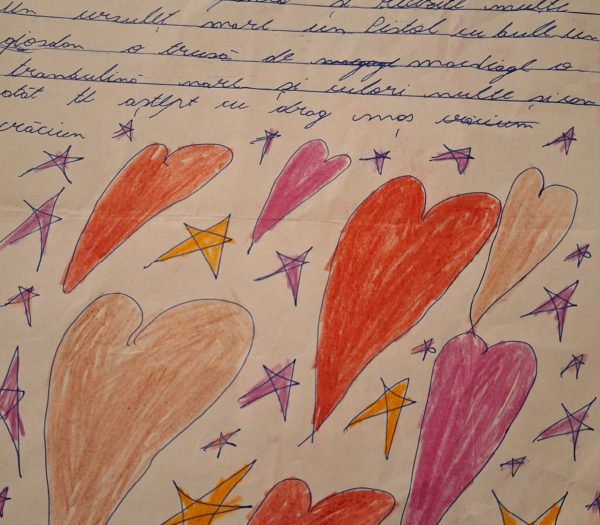 și multe
Un ursuleț mare un Pistol cu bule un
ghiosdon o trusă de machiagl o
tranbulină mare și culori multe și con
atât te aștept cu drag moș
crăciun